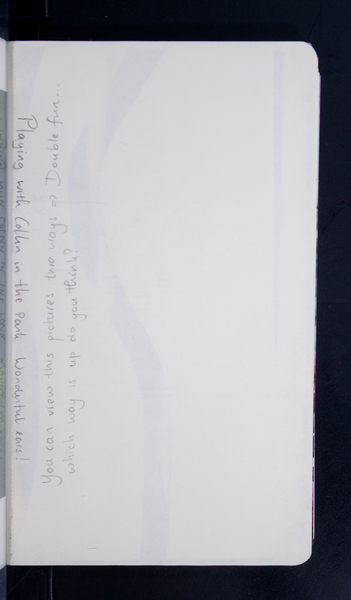 Playing with Collin in the Park Wonderful ears!
You can view this pictures two ways => Double fun...
which way is up do you think?